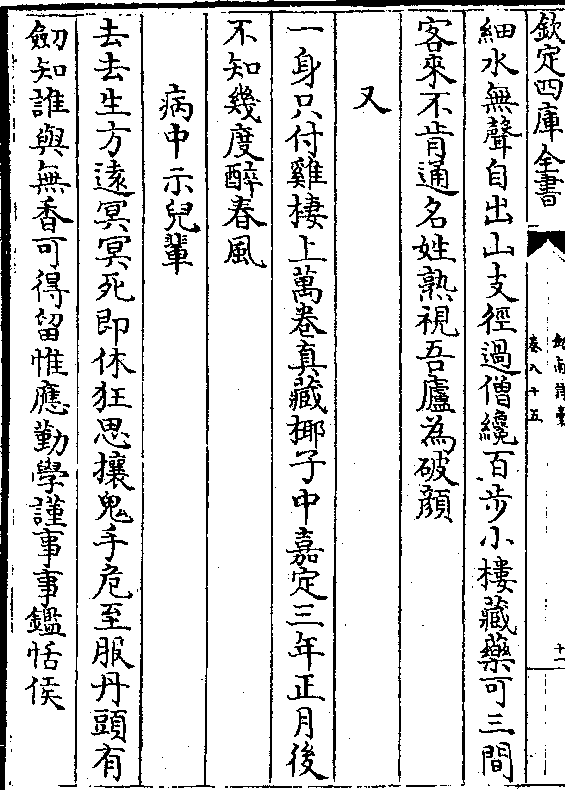 欽定四庫全書
卷八十五
十一
細水無聲自出山支徑過僧纔百步小樓藏藥可三間
客來不肯通名姓熟視吾廬為破顔
又
一身只付雞棲上萬卷真藏椰子中嘉定三年正月後
不知幾度醉春風
病中示兒輩
去去生方逺冥冥死即休狂思攘鬼手危至服丹頭有
劒知誰與無香可得留惟應勤學謹事事鑑恬侯